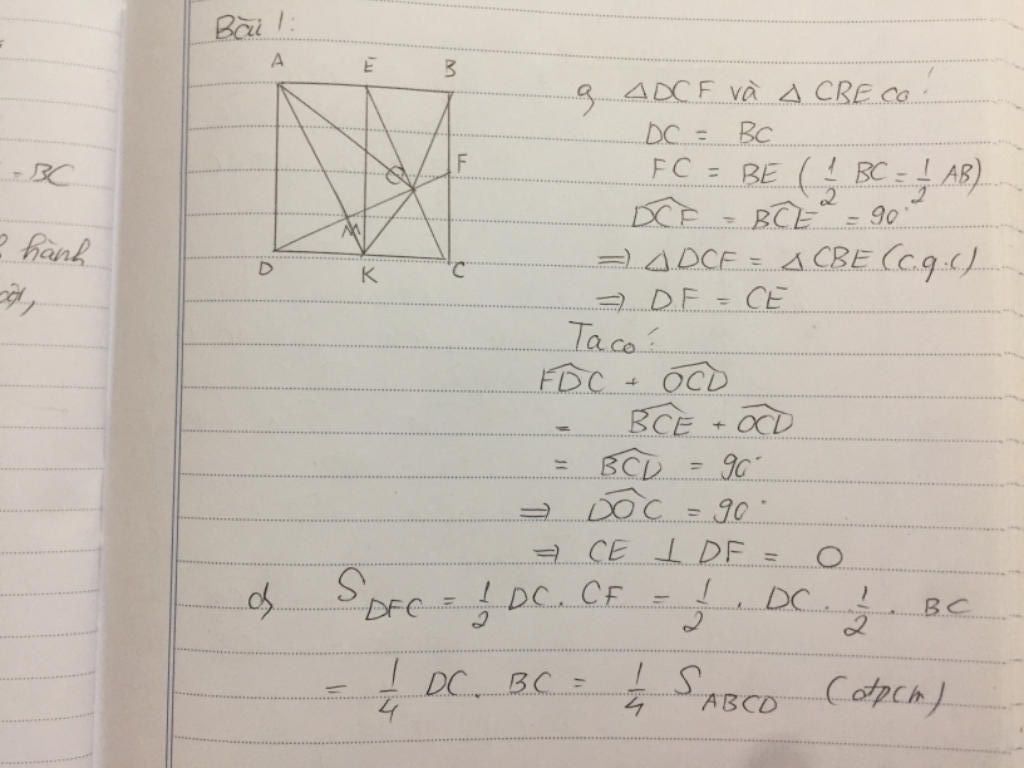 = BC
hành
Bài 1:
A E B
O F
M
D K C
a, △DCF và △CBE có:
DC = BC
FC = BE ( 1/2 BC = 1/2 AB)
DCF = BCE = 90°
⇒ △DCF = △CBE (c.g.c)
⇒ DF = CE
Ta có:
FDC + OCD
= BCE + OCD
= BCD = 90°
⇒ DOC = 90°
⇒ CE ⊥ DF = O
d, S_DFC = 1/2 DC . CF = 1/2 . DC . 1/2 . BC
= 1/4 DC . BC = 1/4 S_ABCD (đpcm)